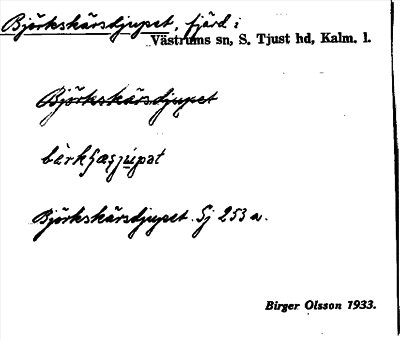 Björkskärsdjupet, fjärd i
Västrums sn, S. Tjust hd, Kalm. l.
Björkskärsdjupet
Björkskärsdjupet. Sj 253 a.
Birger Olsson 1933.